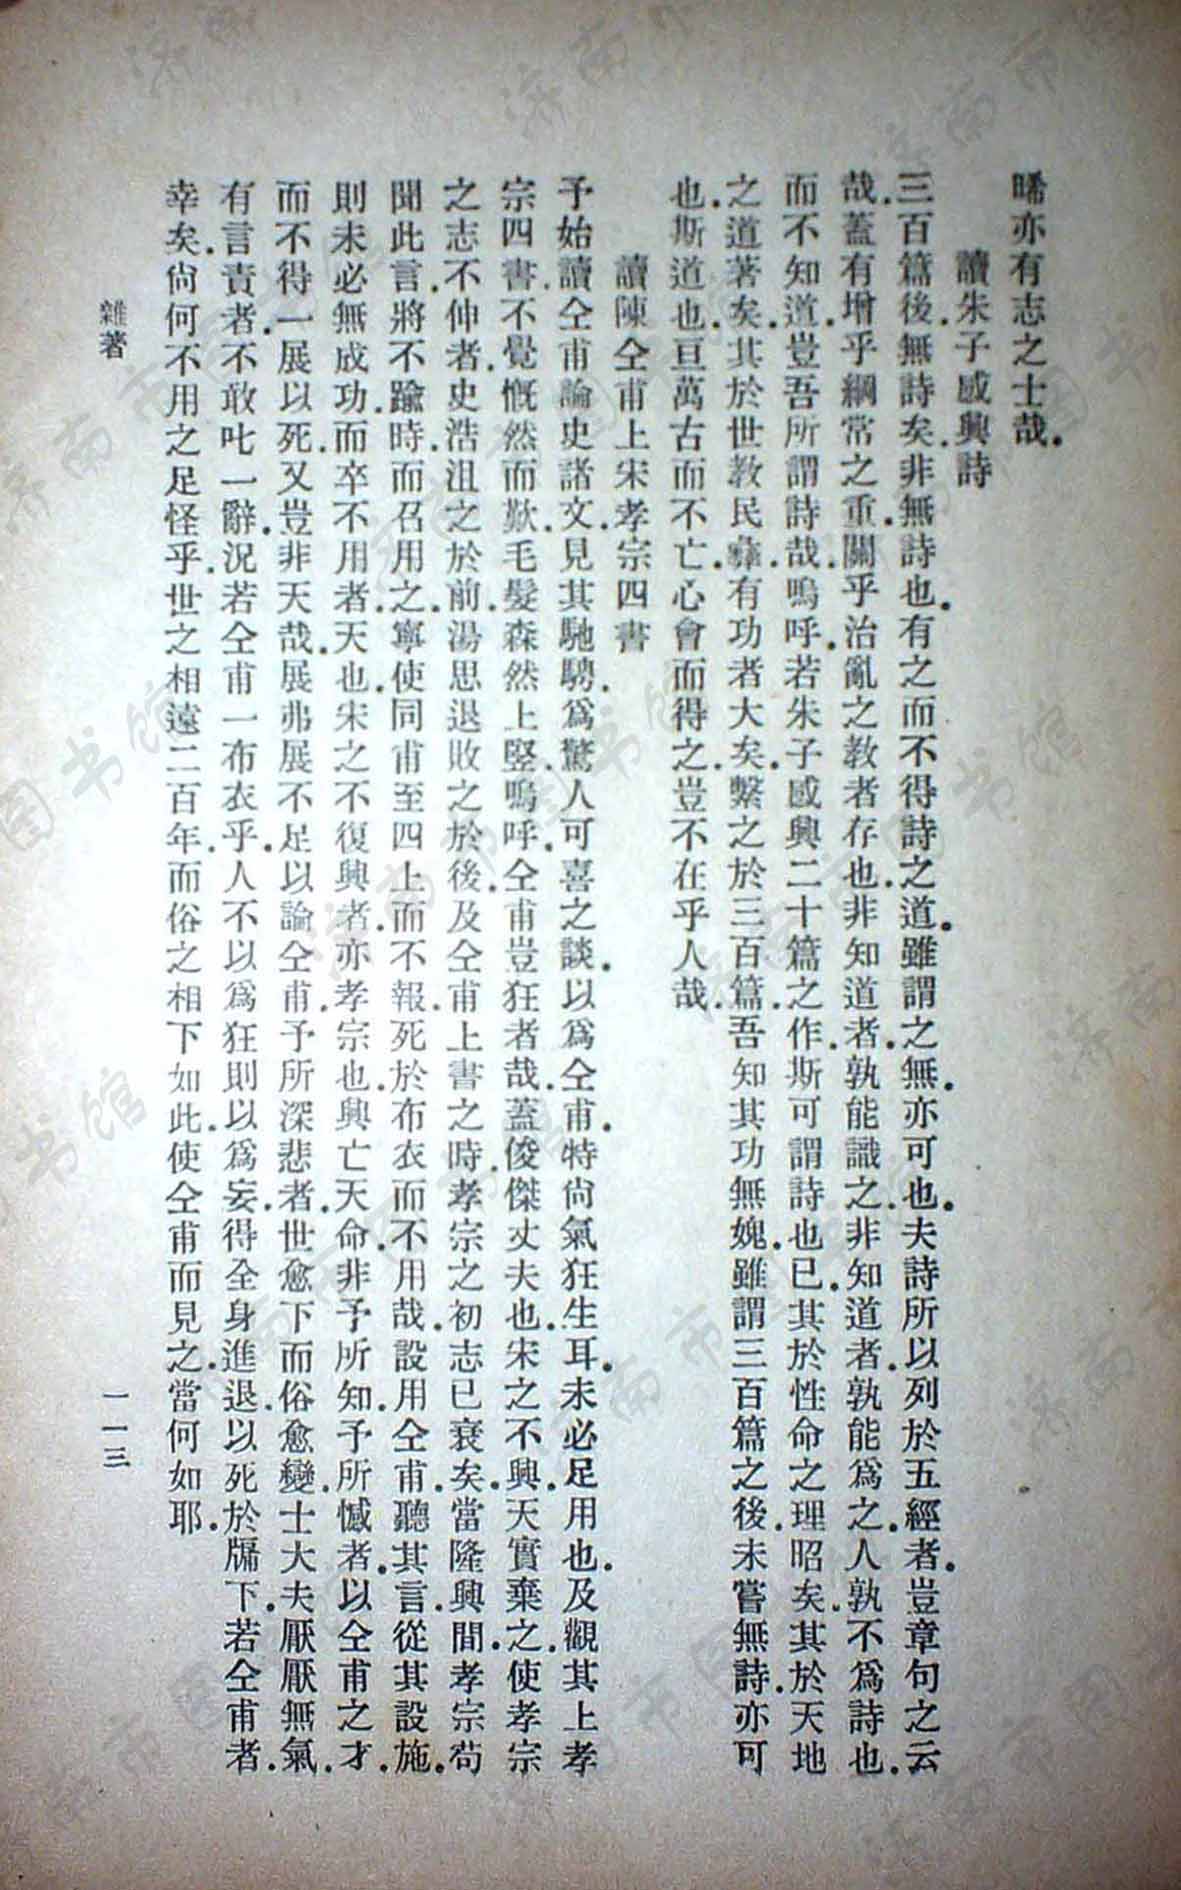 晞亦有志之士哉.
讀朱子感興詩
三百篇後.無詩矣.非無詩也.有之而不得詩之道.雖謂之無.亦可也.夫詩所以列於五經者.豈章句之云
哉.蓋有增乎綱常之重.關乎治亂之教者存也.非知道者.孰能識之.非知道者.孰能爲之.人孰不爲詩也.
而不知道.豈吾所謂詩哉.嗚呼.若朱子感興二十篇之作.斯可謂詩也已.其於性命之理昭矣.其於天地
之道著矣.其於世教民彝.有功者大矣.繫之於三百篇.吾知其功無媿.雖謂三百篇之後.未嘗無詩.亦可
也.斯道也.亘萬古而不亡.心會而得之.豈不在乎人哉.
讀陳仝甫上宋孝宗四書
予始讀仝甫論史諸文.見其馳騁.爲驚人可喜之談.以爲仝甫.特尙氣狂生耳.未必足用也.及觀其上孝
宗四書.不覺慨然而歎.毛髮森然上竪.嗚呼.仝甫豈狂者哉.蓋俊傑丈夫也.宋之不興.天實棄之.使孝宗
之志不伸者.史浩沮之於前.湯思退敗之於後.及仝甫上書之時.孝宗之初志已衰矣.當隆興間.孝宗苟
聞此言.將不踰時.而召用之.寧使同甫至四上而不報.死於布衣而不用哉.設用仝甫.聽其言.從其設施.
則未必無成功.而卒不用者.天也.宋之不復興者.亦孝宗也.興亡天命.非予所知.予所憾者.以仝甫之才.
而不得一展以死.又豈非天哉.展弗展.不足以論仝甫.予所深悲者.世愈下而俗愈變.士大夫厭厭無氣.
有言責者.不敢吐一辭.況若仝甫一布衣乎.人不以爲狂.則以爲妄.得全身進退.以死於牖下.若仝甫者.
幸矣.尙何不用之足怪乎.世之相遠二百年.而俗之相下如此.使仝甫而見之.當何如耶.
雜著
一一三